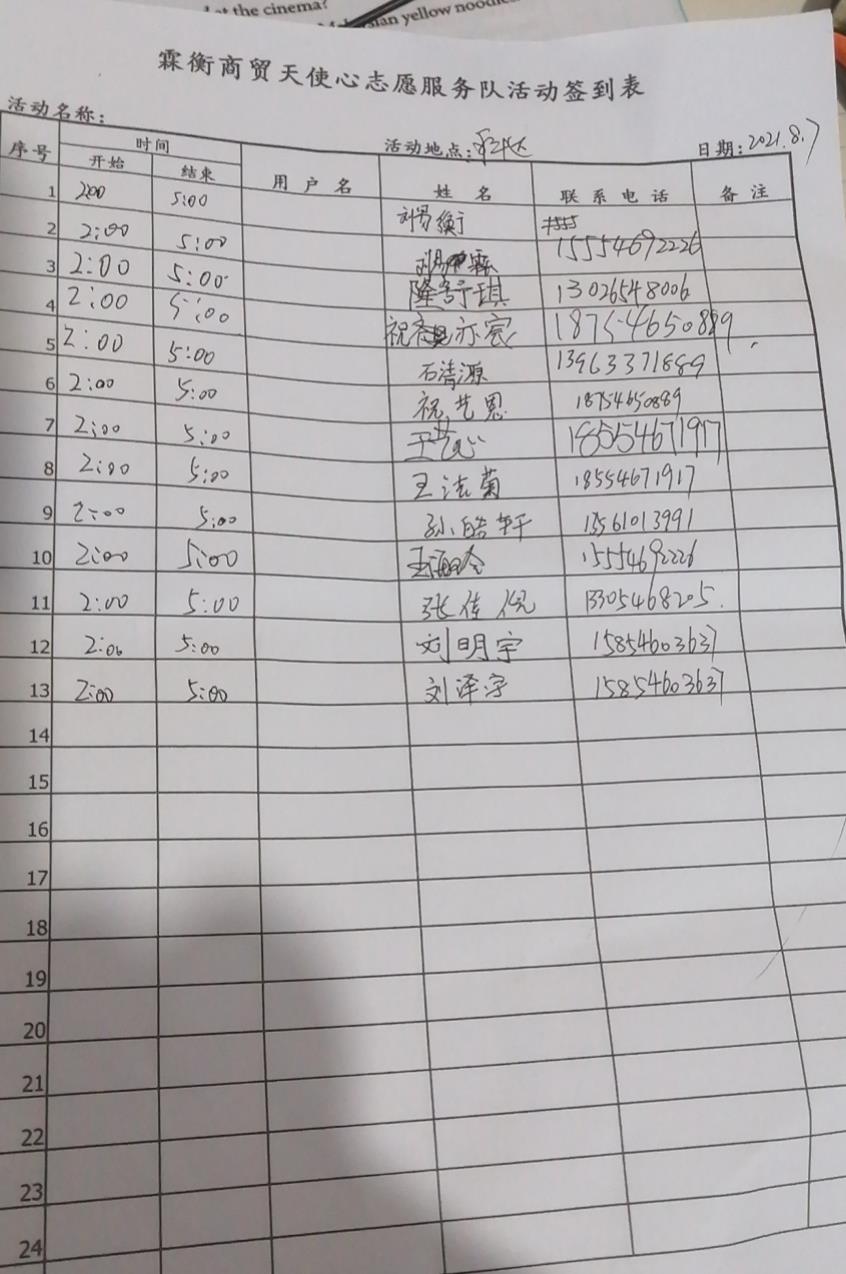 at the cinema?
yellow noodles
霖衡商贸天使心志愿服务队活动签到表
活动名称:
活动地点:
日期:2021.8.7
序号 时间 用户名 姓名 联系电话 备注
开始 结束
1 2:00 5:00 刘易衡
2 2:00 5:00 15554692226
3 2:00 5:00 隆舒琪 13026548006
4 2:00 5:00 祝亦宸 18754650889
5 2:00 5:00 石清源 13963371889
6 2:00 5:00 祝艺恩 18754650889
7 2:00 5:00 王艺心 18554671917
8 2:00 5:00 王洁菊 18554671917
9 2:00 5:00 孙皓轩 13561013991
10 2:00 5:00 15554692226
11 2:00 5:00 张佳倪 13305468205.
12 2:00 5:00 刘明宇 15854603637
13 2:00 5:00 刘泽宇 15854603637
14
15
16
17
18
19
20
21
22
23
24